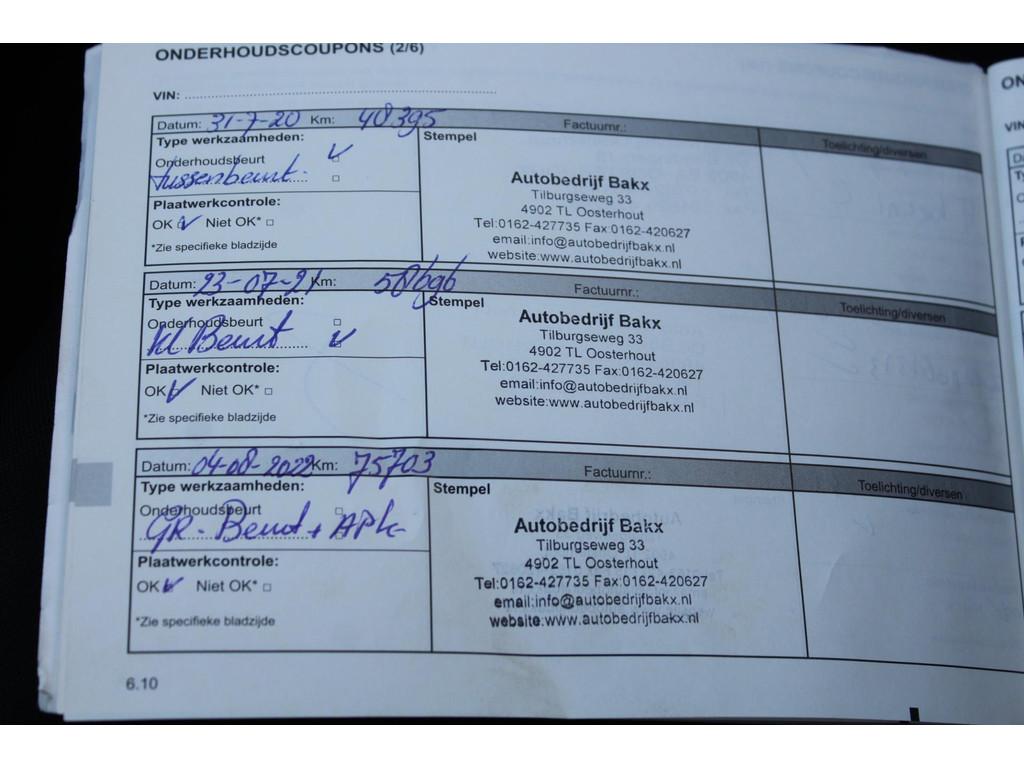 ONDERHOUDSCOUPONS (2/6)
VIN:
Datum: 31-7-20 Km: 48395 Factuurnr.: Toelichting/diversen
Type werkzaamheden: Stempel
Onderhoudsbeurt
Tussenbeurt.
Plaatwerkcontrole:
OK Niet OK*
*Zie specifieke bladzijde
Autobedrijf Bakx
Tilburgseweg 33
4902 TL Oosterhout
Tel:0162-427735 Fax:0162-420627
email:info@autobedrijfbakx.nl
website:www.autobedrijfbakx.nl
Datum: 23-07-21 Km: 58696 Factuurnr.: Toelichting/diversen
Type werkzaamheden: Stempel
Onderhoudsbeurt
Kl Beurt
Plaatwerkcontrole:
OK Niet OK*
*Zie specifieke bladzijde
Autobedrijf Bakx
Tilburgseweg 33
4902 TL Oosterhout
Tel:0162-427735 Fax:0162-420627
email:info@autobedrijfbakx.nl
website:www.autobedrijfbakx.nl
Datum: 04-08-2022 Km: 75703 Factuurnr.: Toelichting/diversen
Type werkzaamheden: Stempel
Onderhoudsbeurt
GR- Beurt + APk
Plaatwerkcontrole:
OK Niet OK*
*Zie specifieke bladzijde
Autobedrijf Bakx
Tilburgseweg 33
4902 TL Oosterhout
Tel:0162-427735 Fax:0162-420627
email:info@autobedrijfbakx.nl
website:www.autobedrijfbakx.nl
6.10